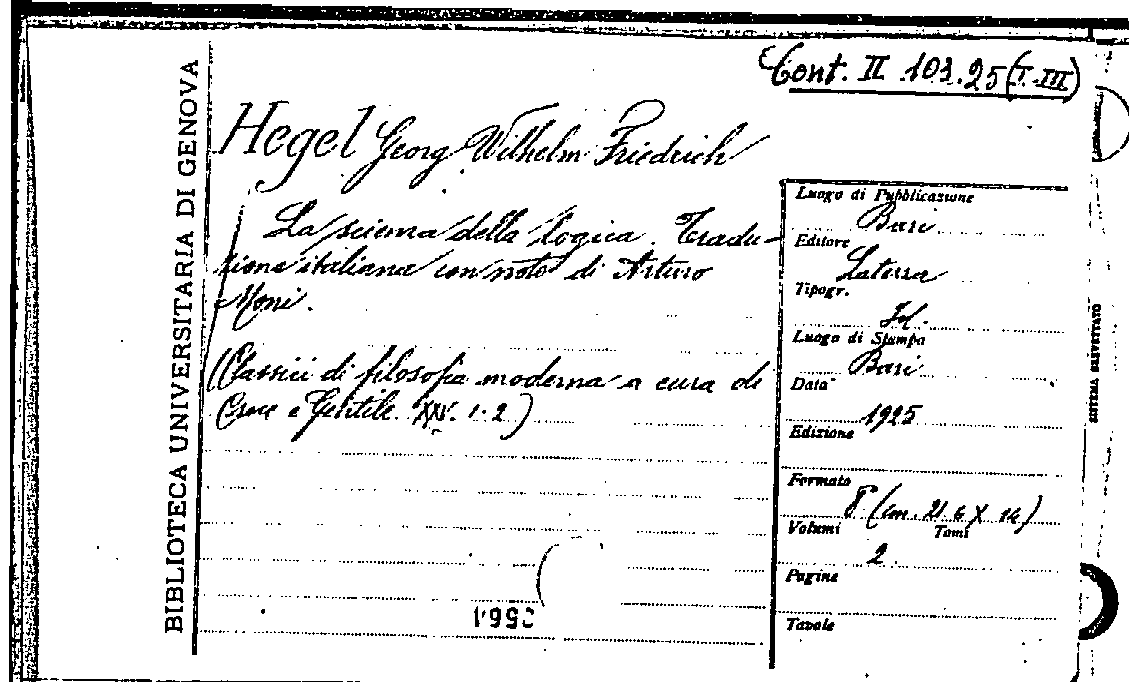 Cont. II 101.25 (I-III)
BIBLIOTECA UNIVERSITARIA DI GENOVA
Hegel Georg Wilhelm Friedrich
La scienza della logica. Tradu-
zione italiana con note di Arturo
Moni.
(Classici di filosofia moderna a cura di
Croce e Gentile XXV. 1-2)
Luogo di Pubblicazione
Bari
Editore
Laterza
Tipogr.
Id.
Luogo di Stampa
Bari
Data
1925
Edizione
Formato
8° (cm. 21.6 X 14)
Volumi Tomi
2.
Pagine
Tavole
SISTEMA BREVETTATO